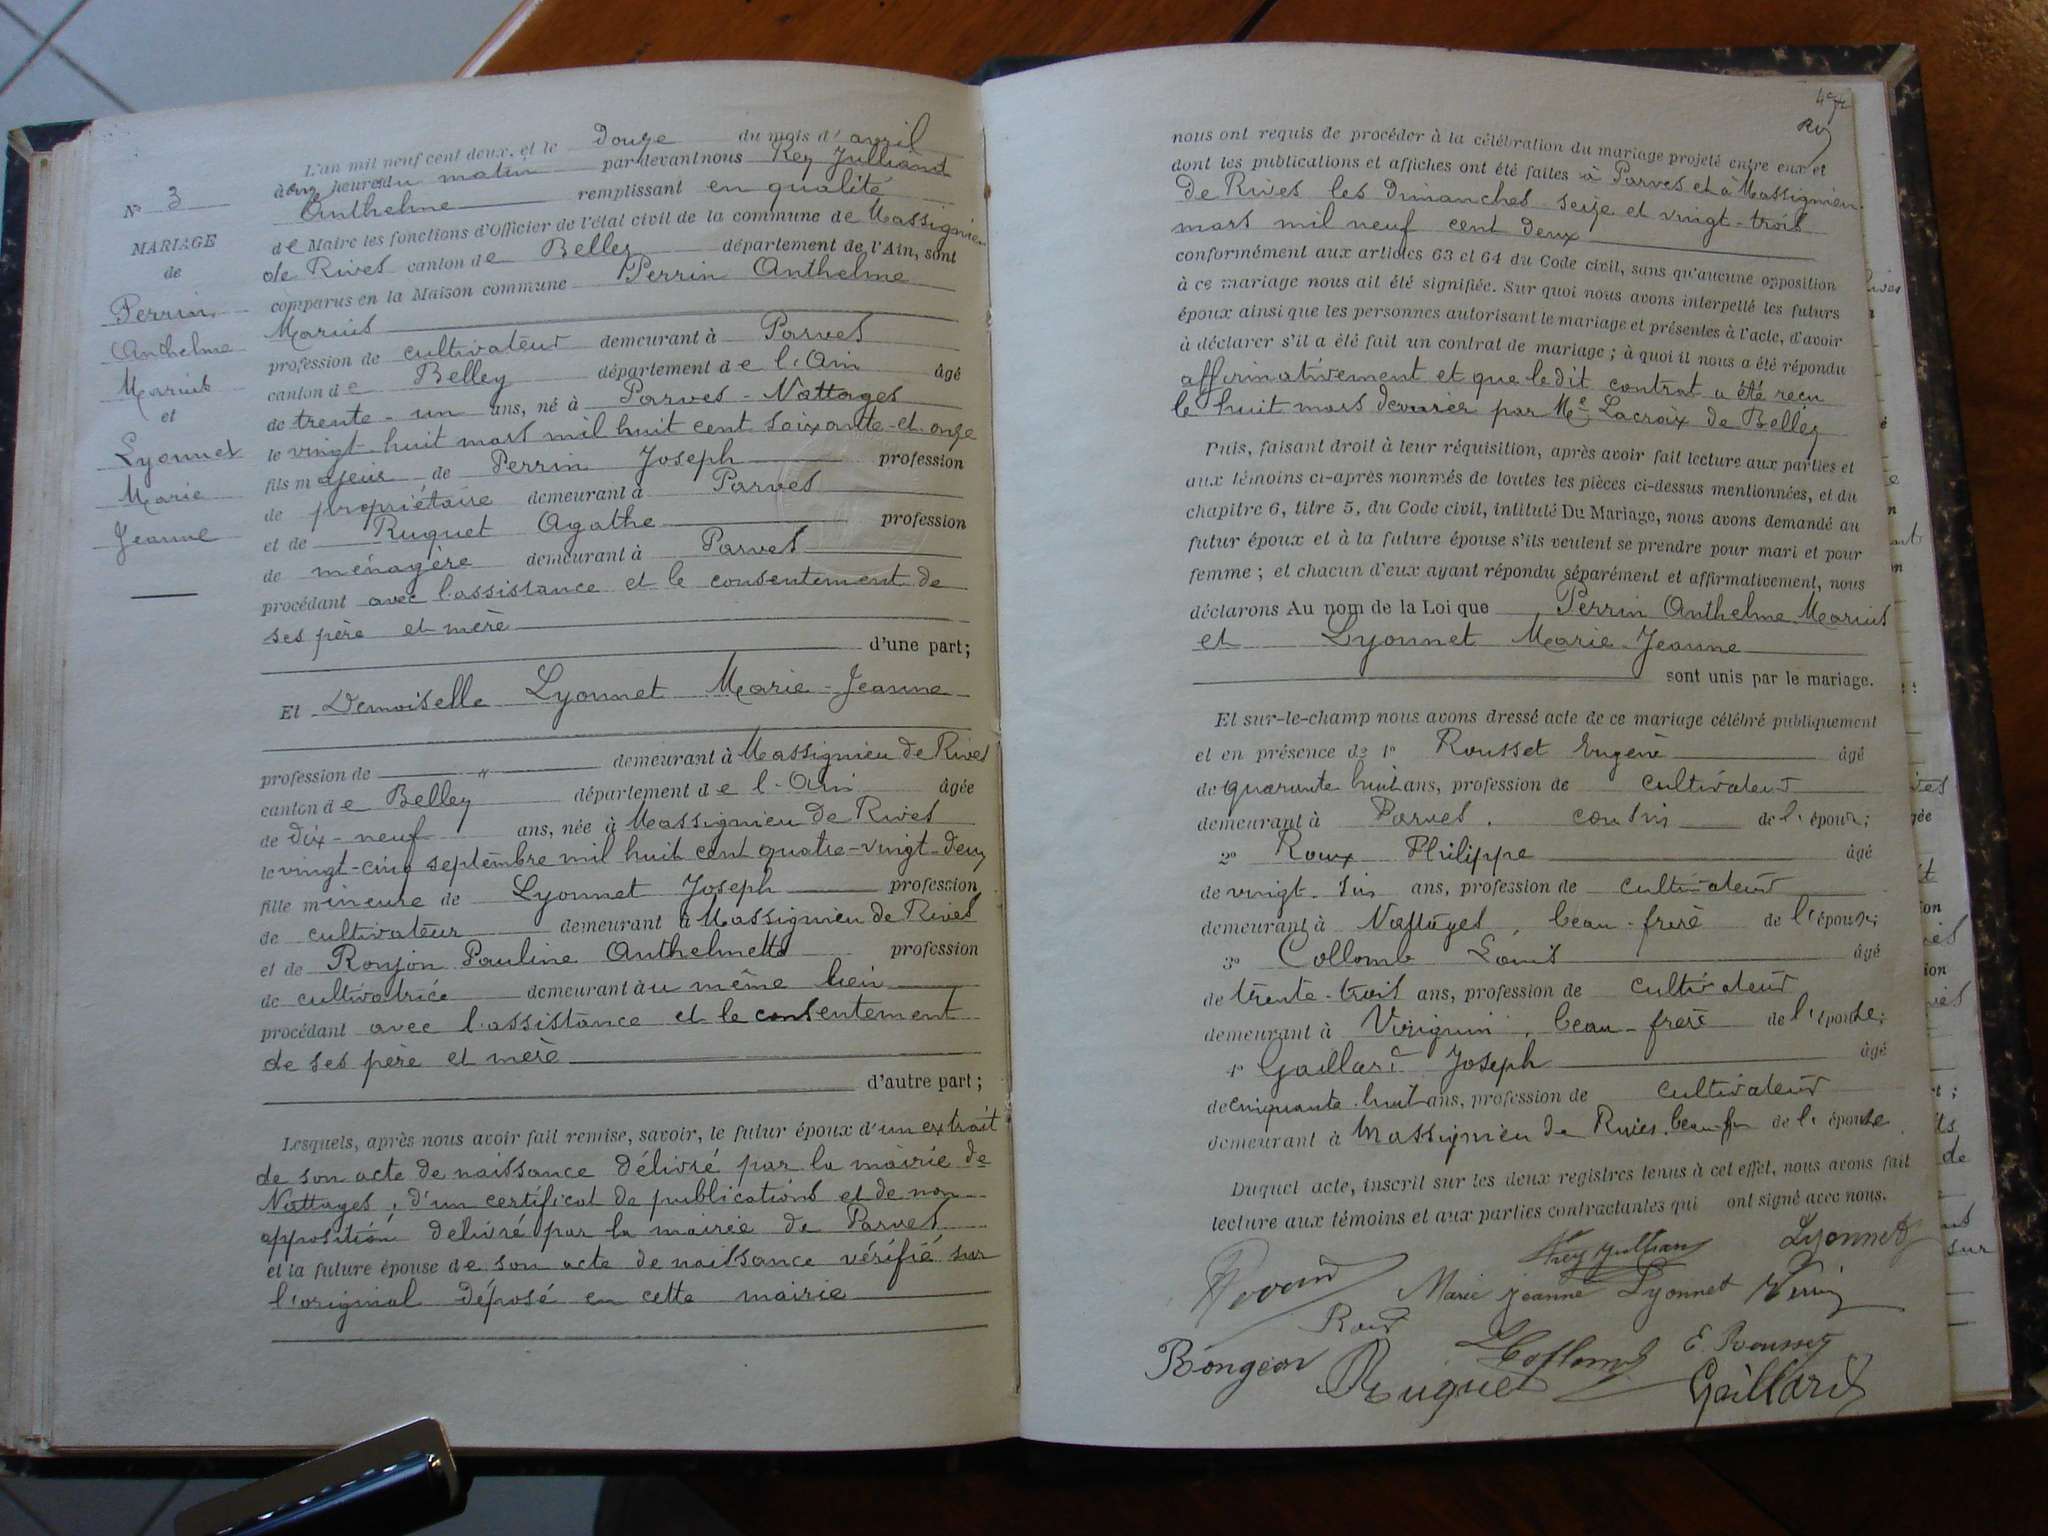 N° 3
MARIAGE
de
Perrin
Anthelme
Marius
et
Lyonnet
Marie
Jeanne
L'an mil neuf cent deux, et le douze du mois d'avril
à heures du matin par devant nous Rey Julliand
Anthelme remplissant en qualité
de Maire les fonctions d'Officier de l'état civil de la commune de Massignieu
de Rives canton de Belley département de l'Ain, sont
comparus en la Maison commune Perrin Anthelme
Marius
profession de cultivateur demeurant à Parves
canton de Belley département de l'Ain âgé
de trente-un ans, né à Parves-Nattages
le vingt-huit mars mil huit cent soixante-et-onze
fils majeur de Perrin Joseph profession
de propriétaire demeurant à Parves
et de Ruguet Agathe profession
de ménagère demeurant à Parves
procédant avec l'assistance et le consentement de
ses père et mère
d'une part;
Et Demoiselle Lyonnet Marie-Jeanne
profession de " demeurant à Massignieu de Rives
canton de Belley département de l'Ain âgée
de dix-neuf ans, née à Massignieu de Rives
le vingt-cinq septembre mil huit cent quatre-vingt-deux
fille mineure de Lyonnet Joseph profession
de cultivateur demeurant à Massignieu de Rives
et de Ronjon Pauline Anthelmette profession
de cultivatrice demeurant au même lieu
procédant avec l'assistance et le consentement
de ses père et mère
d'autre part;
Lesquels, après nous avoir fait remise, savoir, le futur époux d'un extrait
de son acte de naissance délivré par la mairie de
Nattages, d'un certificat de publications et de non
opposition délivré par la mairie de Parves
et la future épouse de son acte de naissance vérifié sur
l'original déposé en cette mairie
nous ont requis de procéder à la célébration du mariage projeté entre eux et
dont les publications et affiches ont été faites à Parves et à Massignieu
de Rives les dimanches seize et vingt-trois
mars mil neuf cent deux
conformément aux articles 63 et 64 du Code civil, sans qu'aucune opposition
à ce mariage nous ait été signifiée. Sur quoi nous avons interpellé les futurs
époux ainsi que les personnes autorisant le mariage et présentes à l'acte, d'avoir
à déclarer s'il a été fait un contrat de mariage; à quoi il nous a été répondu
affirmativement et que ledit contrat a été reçu
le huit mars dernier par Me Lacroix de Belley
Puis, faisant droit à leur réquisition, après avoir fait lecture aux parties et
aux témoins ci-après nommés de toutes les pièces ci-dessus mentionnées, et du
chapitre 6, titre 5, du Code civil, intitulé Du Mariage, nous avons demandé au
futur époux et à la future épouse s'ils veulent se prendre pour mari et pour
femme; et chacun d'eux ayant répondu séparément et affirmativement, nous
déclarons Au nom de la Loi que Perrin Anthelme Marius
et Lyonnet Marie-Jeanne
sont unis par le mariage.
Et sur-le-champ nous avons dressé acte de ce mariage célébré publiquement
et en présence de 1° Rousset Eugène âgé
de quarante huit ans, profession de cultivateur
demeurant à Parves, cousin de l'époux;
2° Roux Philippe âgé
de vingt-six ans, profession de cultivateur
demeurant à Nattages, beau-frère de l'époux;
3° Collomb Louis âgé
de trente-trois ans, profession de cultivateur
demeurant à Virignin, beau-frère de l'épouse;
4° Gaillard Joseph âgé
de cinquante-huit ans, profession de cultivateur
demeurant à Massignieu de Rives, de l'épouse
Duquel acte, inscrit sur les deux registres tenus à cet effet, nous avons fait
lecture aux témoins et aux parties contractantes qui ont signé avec nous.
Rey Julliand Lyonnet
Marie Jeanne Lyonnet Perrin
Roux
Rongeon Ruguet Collomb E. Rousset
Gaillard